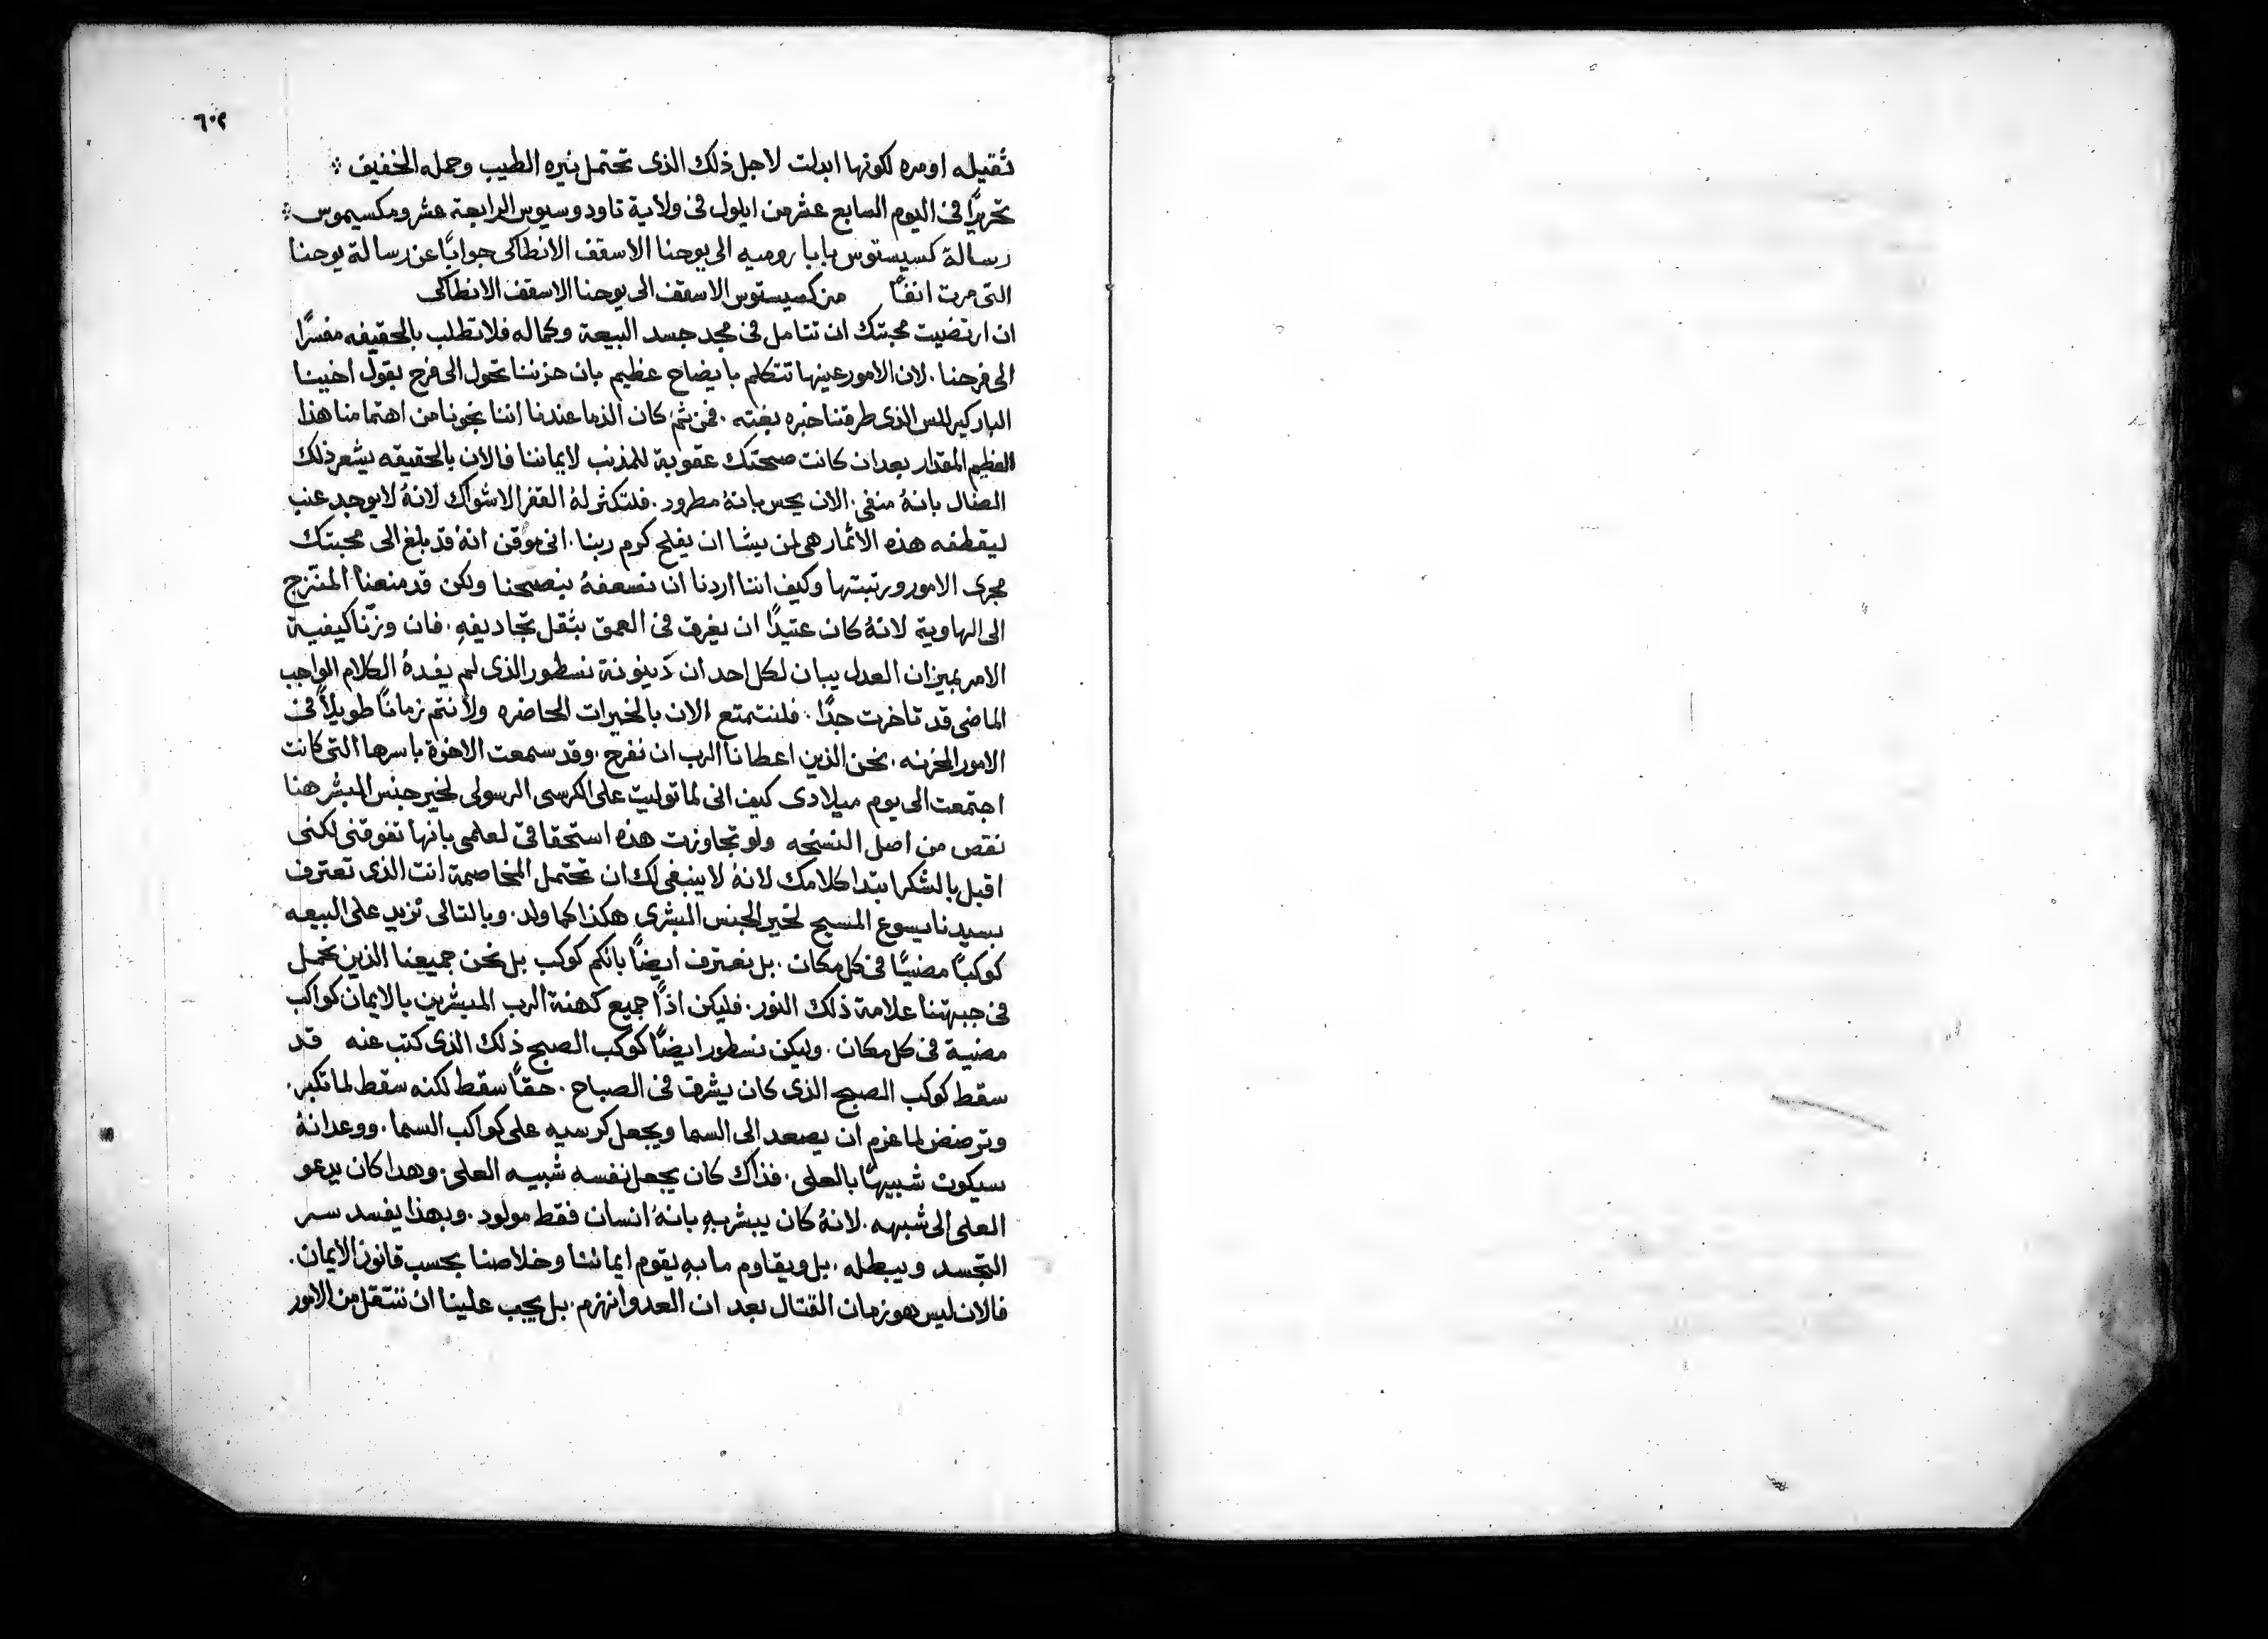 ٦٠٢
ثقيله او مره لكونها ابدلت لاجل ذلك الذى تحتمل نيره الطيب وحمله الخفيف
تحريرًا فى اليوم السابع عشر من ايلول فى ولاية تاودوسيوس الرابعة عشر ومكسيموس
رسالة كسيستوس بابا روميه الى يوحنا الاسقف الانطاكى جوابًا عن رسالة يوحنا
التى مرت انفًا من كسيستوس الاسقف الى يوحنا الاسقف الانطاكى
ان ارتضيت محبتك ان تتامل فى مجد جسد البيعة وكماله فلا تطلب بالحقيقه مفسرًا
الى فرحنا . لان الامور عينها تتكلم بايضاح عظيم بان حزننا تحول الى فرح بقول اخينا
البار كيرللس الذى طرقتنا خبره بغته . فمن ثم كان الذما عندنا اننا نجونا من اهتمامنا هذا
العظيم المقدار بعد ان كانت صحتك عقوبة للمذنب لايماننا فالان بالحقيقه يشعر ذلك
الضال بانهُ منفى . الان يحس بانهُ مطرود . فلتكثر لهُ القفر الاشواك لانهُ لا يوجد عنب
ليقطفه هذه الاثمار هى لمن يشا ان يفلح كرم ربنا . انى موقن انهُ قد بلغ الى محبتك
مجرى الامور ورتبتها وكيف اننا اردنا ان نسعفهُ بنصحنا ولكن قد منعنا المنزج
الى الهاوية لانهُ كان عتيدًا ان يغرق فى العمق بثقل تجاديفهِ . فان وزنّا كيفية
الامر بميزان العدل يبان لكل احد ان دينونة نسطور الذى لم يفدهُ الكلام الواجب
الماضى قد تاخرت جدًا . فلنتمتع الان بالخيرات الحاضره ولا نتم زمانًا طويلاً فى
الامور المحزنه . نحن الذين اعطانا الرب ان نفرح . وقد سمعت الاخوة باسرها التى كانت
اجتمعت الى يوم ميلادى كيف انى لما توليت على الكرسى الرسولى لخير جنس البشر هنا
نقص من اصل النسخه ولو تجاوزت هذه استحقاقى لعلمى بانها تفوقنى لكنى
اقبل بالشكر ابتدا كلامك لانهُ لا ينبغى لك ان تحتمل المخاصمة انت الذى تعترف
بسيدنا يسوع المسيح لخير الجنس البشرى هكذا كما ولد . وبالتالى تزيد على البيعه
كوكبًا مضيئًا فى كل مكان . بل نعترف ايضًا بانكم كوكب بل نحن جميعنا الذين نحمل
فى جبهتنا علامة ذلك النور . فليكن اذًا جميع كهنة الرب المبشرين بالايمان كواكب
مضية فى كل مكان . وليكن نسطور ايضًا كوكب الصبح ذلك الذى كتب عنه قد
سقط كوكب الصبح الذى كان يشرق فى الصباح . حقًا سقط لكنه سقط لما تكبر .
وترضض لما عزم ان يصعد الى السما ويجعل كرسيه على كواكب السما . ووعد انهُ
سيكون شبيهًا بالعلى . فذاك كان يجعل نفسه شبيه العلى . وهدا كان يدعو
العلى الى شبهه . لانهُ كان يبشر بهِ بانهُ انسان فقط مولود . وبهذا يفسد سر
التجسد ويبطله . بل ويقاوم ما بهِ يقوم ايماننا وخلاصنا بحسب قانون الايمان .
فالان ليس هو زمان القتال بعد ان العدو انهزم . بل يجب علينا ان ننتقل من الامور